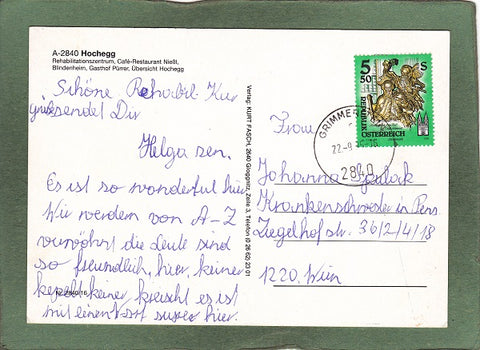 A-2840 Hochegg
Rehabilitationszentrum, Café-Restaurant Nießl,
Blindenheim, Gasthof Pürrer, Übersicht Hochegg
Schöne Rehabil. Kur
grüße sendet Dir
Helga sen.
Es ist so wonderful hier
Wir werden von A-Z
verwöhnt die Leute sind
so freundlich, hier, keiner
keppelt keiner kreischt es ist
mit einem Wort super hier.
Verlag: KURT FASCH, 2640 Gloggnitz, Zeile 3, Telefon (0 26 62) 23 01
5 S
50
REPUBLIK
ÖSTERREICH
GRIMMEN
22-8
2840
Frau
Johanna
Krankenschwester in Pens.
Ziegelhofstr. 36/2/4/18
1220 Wien